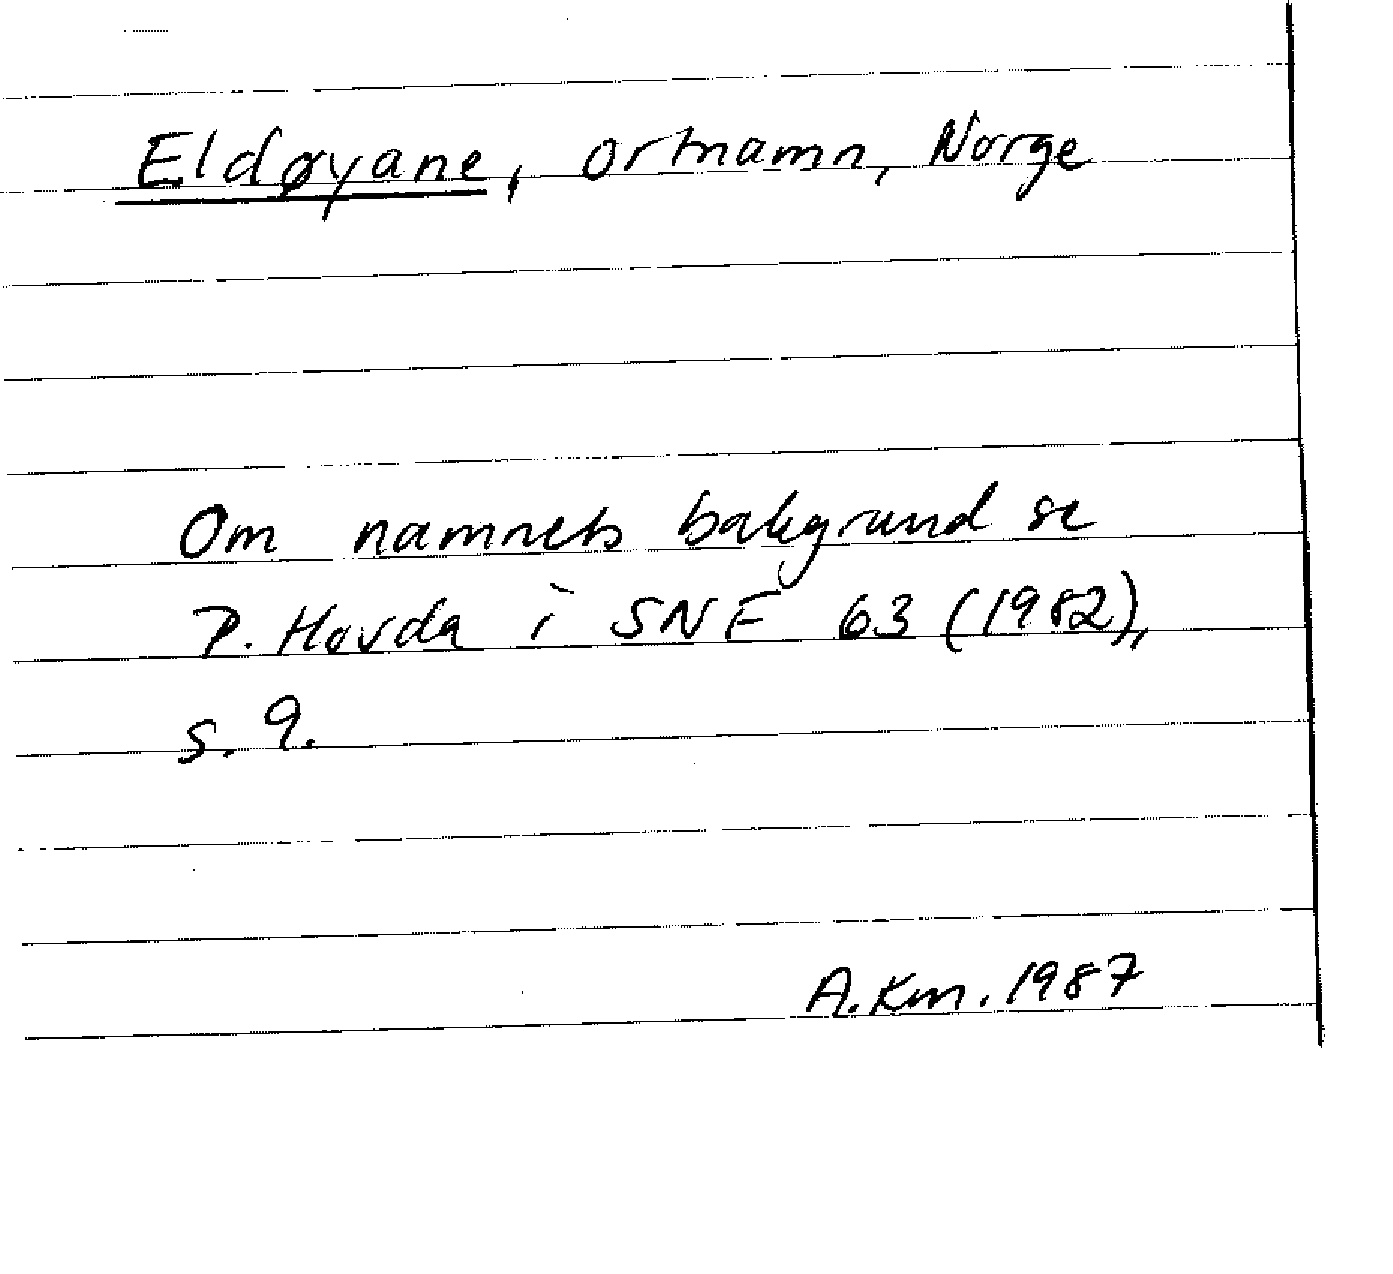 Eldøyane, ortnamn, Norge
Om namnets bakgrund se
P. Hovda i SNF 63 (1982),
s. 9.
A. Km. 1987